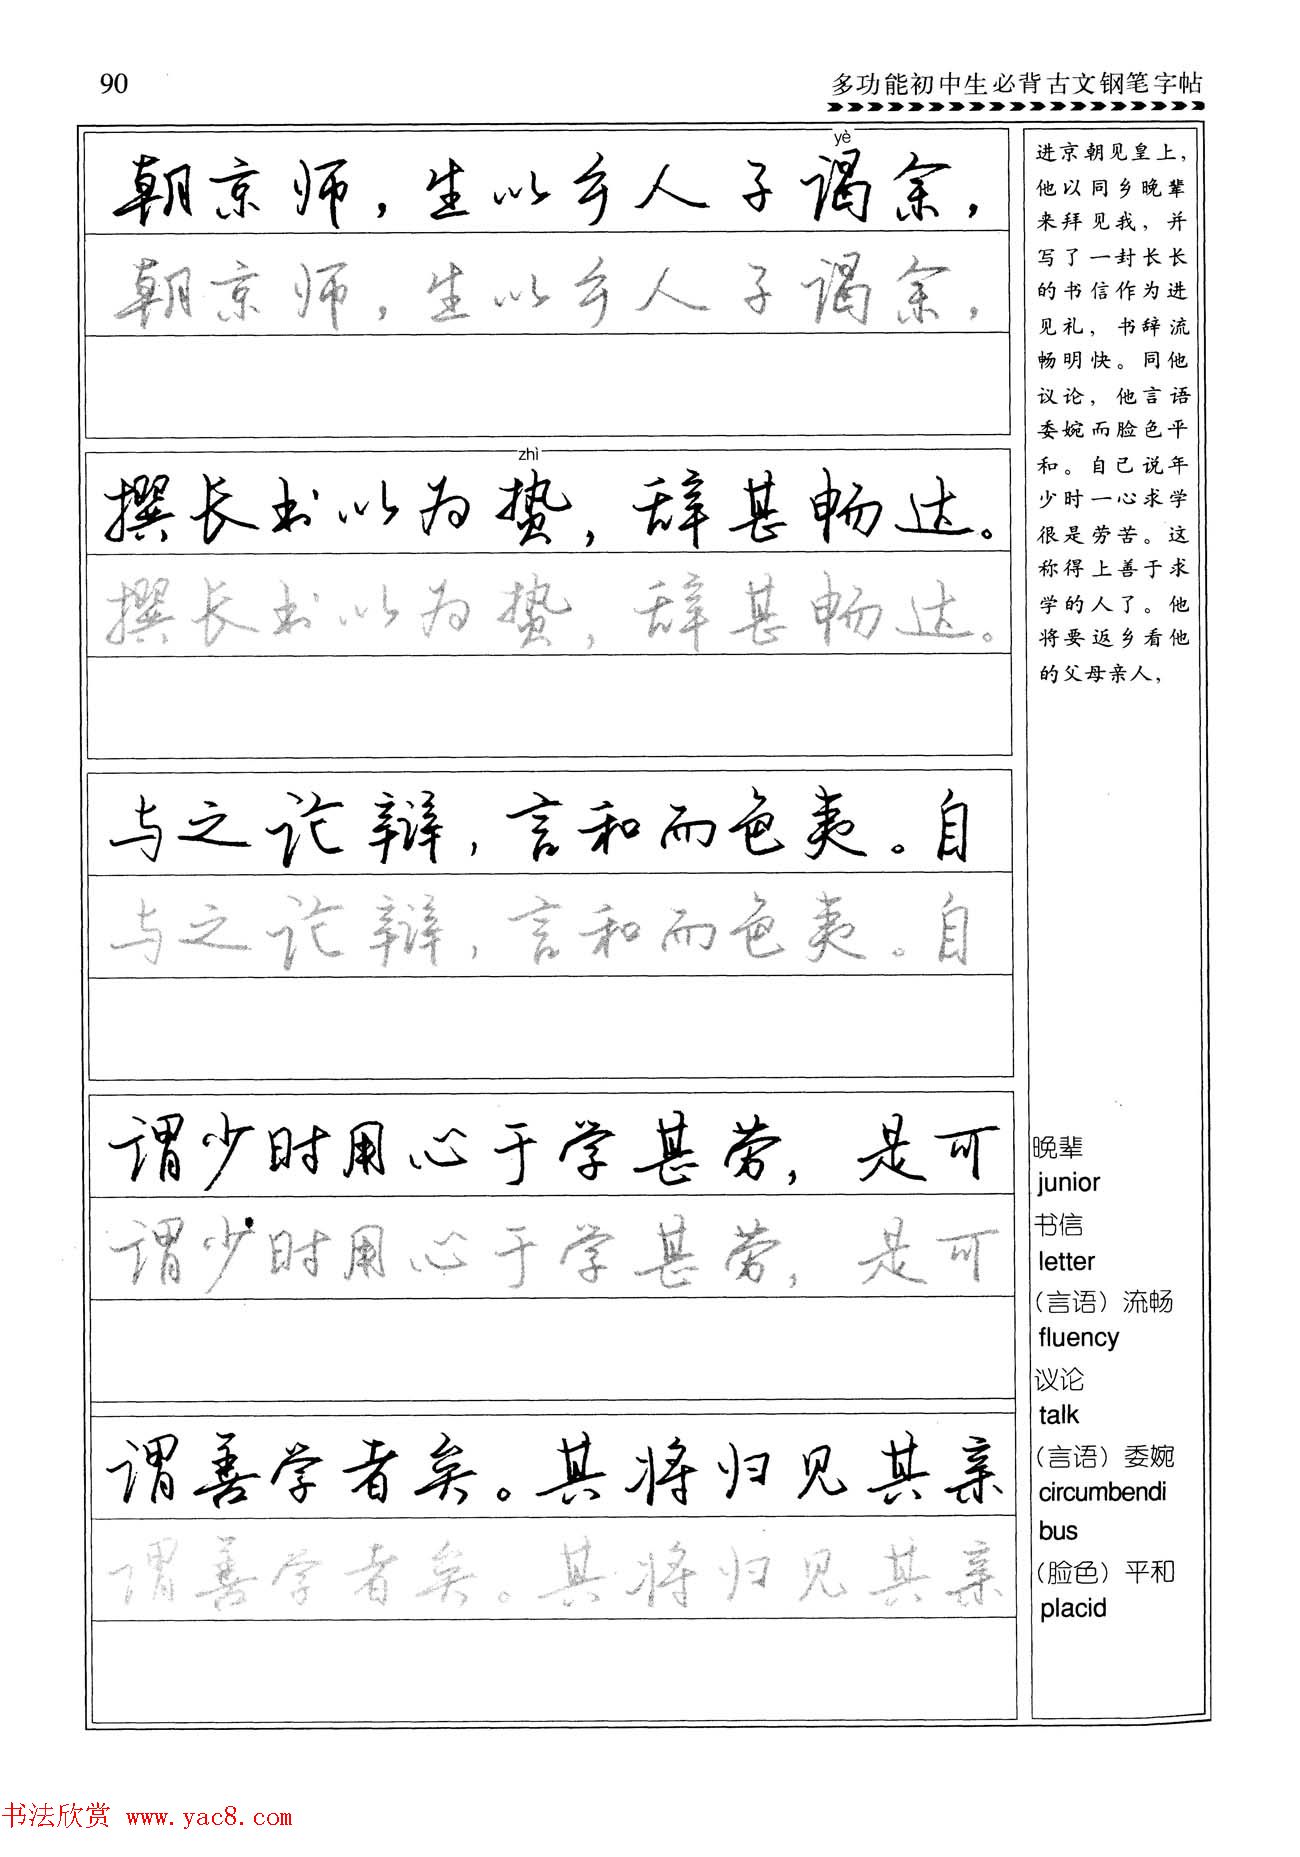 90
多功能初中生必背古文钢笔字帖
yè
朝京师，生以乡人子谒余，
朝京师，生以乡人子谒余，
zhì
撰长书以为贽，辞甚畅达。
撰长书以为贽，辞甚畅达。
与之论辩，言和而色夷。自
与之论辩，言和而色夷。自
谓少时用心于学甚劳，是可
谓少时用心于学甚劳，是可
谓善学者矣。其将归见其亲
谓善学者矣。其将归见其亲
进京朝见皇上，
他以同乡晚辈
来拜见我，并
写了一封长长
的书信作为进
见礼，书辞流
畅明快。同他
议论，他言语
委婉而脸色平
和。自己说年
少时一心求学
很是劳苦。这
称得上善于求
学的人了。他
将要返乡看他
的父母亲人，
晚辈
junior
书信
letter
（言语）流畅
fluency
议论
talk
（言语）委婉
circumbendi
bus
（脸色）平和
placid
书法欣赏 www.yac8.com